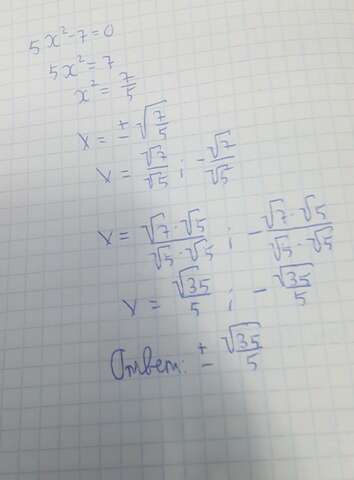 5x² - 7 = 0
5x² = 7
x² = 7/5
x = ± √(7/5)
x = √7/√5 ; - √7/√5
x = √7 · √5 / √5 · √5 ; - √7 · √5 / √5 · √5
x = √35/5 ; - √35/5
Ответ: ± √35/5